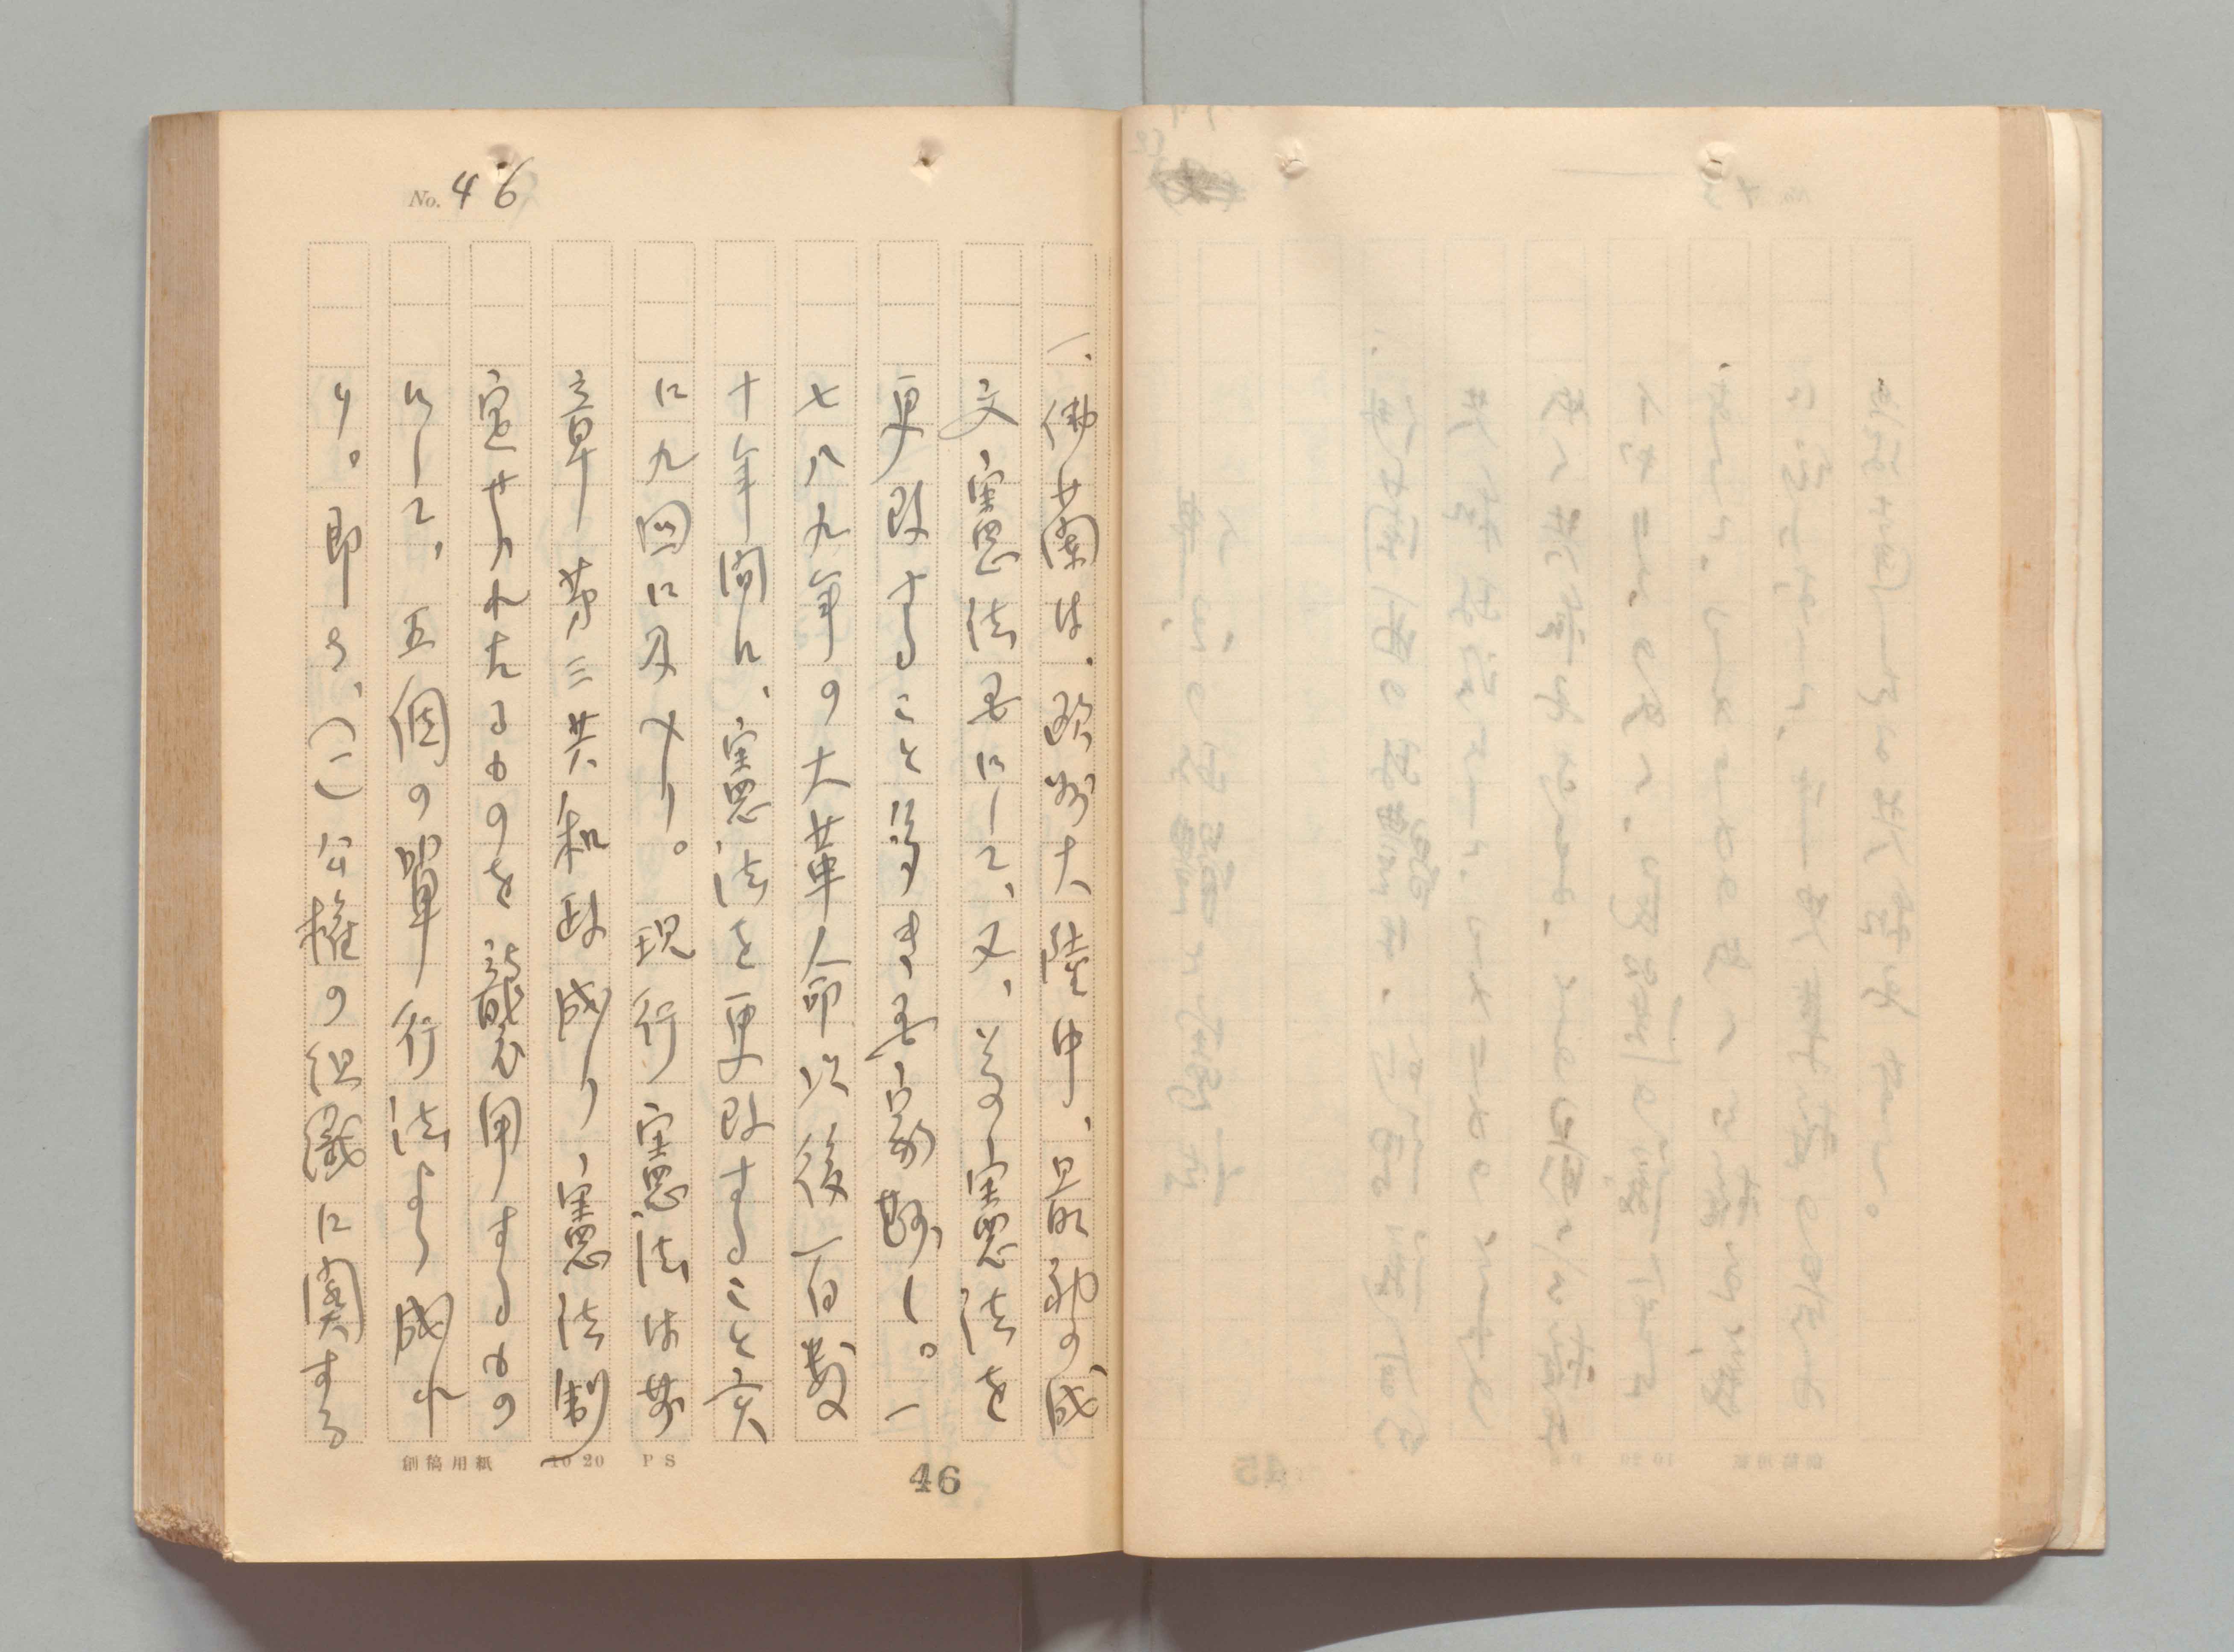 No. 46
一、佛蘭は、欧州大陸中、最初の成
文憲法国にして、又、その憲法を
更改すること多き国家し。一
七八九年の大革命以後一百数
十年間に、憲法を更改すること実
に九回に及へり。現行憲法は
第三共和政成り、憲法制
定せられたるものを襲用するもの
にして、五個の單行法より成れ
り。即ち、(一)公権の組織に関する
創稿用紙 10 20 P S
46